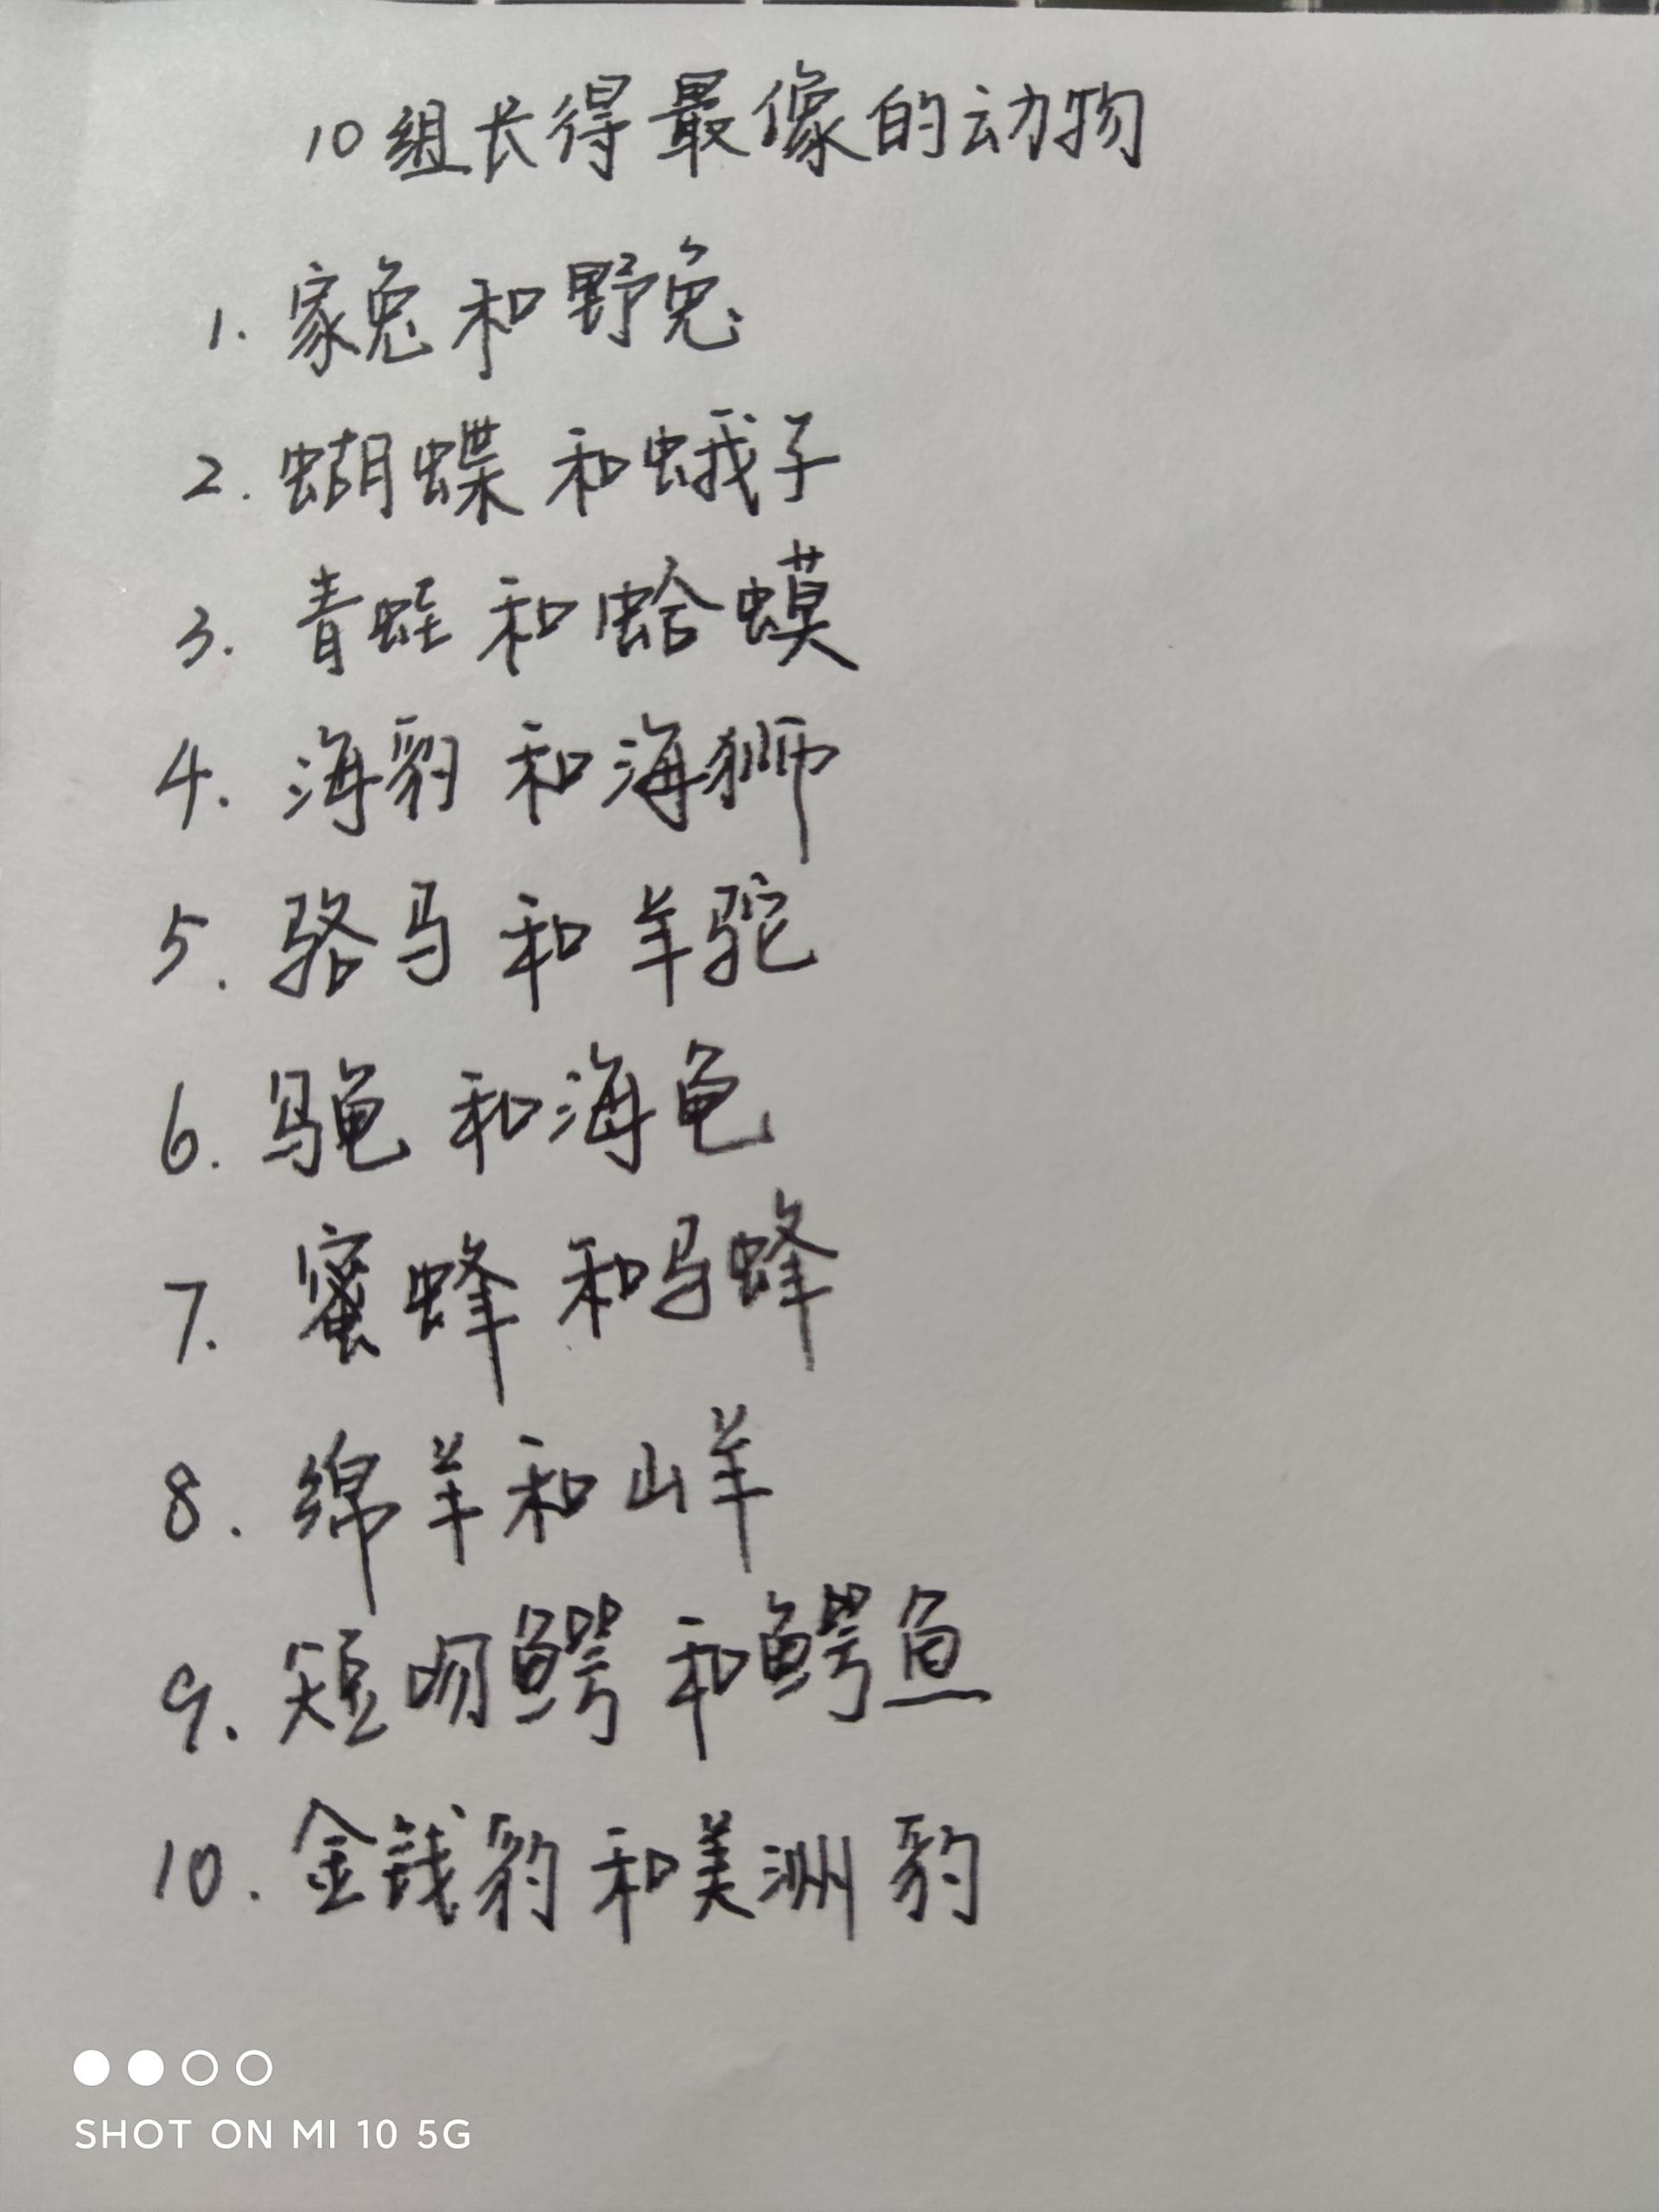 10组长得最像的动物
1. 家兔和野兔
2. 蝴蝶和蛾子
3. 青蛙和蛤蟆
4. 海豹和海狮
5. 骆马和羊驼
6. 陆龟和海龟
7. 蜜蜂和马蜂
8. 绵羊和山羊
9. 短吻鳄和鳄鱼
10. 金钱豹和美洲豹
SHOT ON MI 10 5G